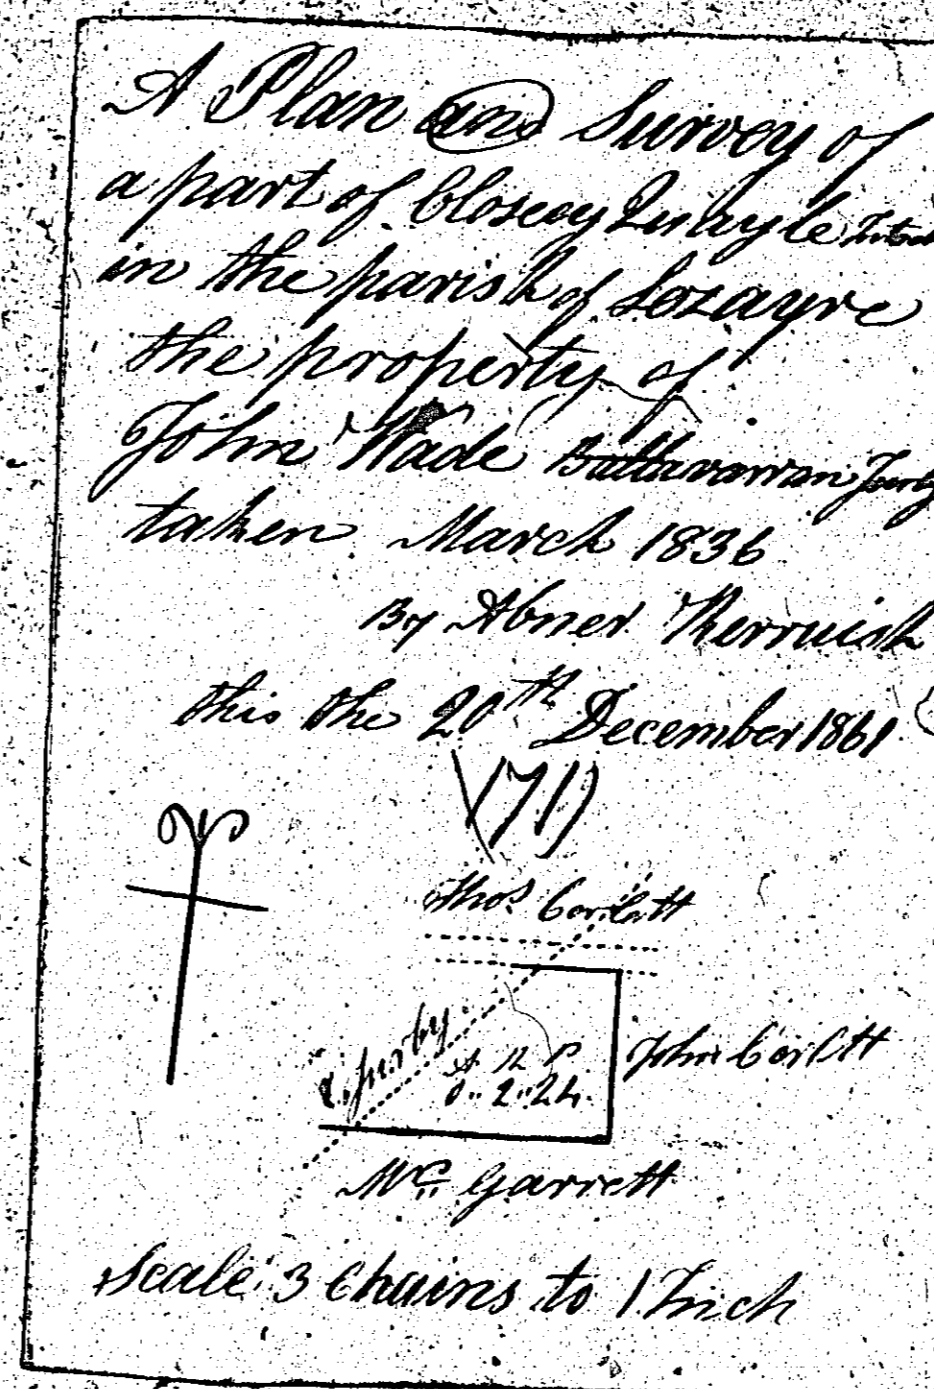 A Plan and Survey of
a part of Closeoy Quayle
in the parish of Lezayre
the property of
John Wade Ballavarran Jurby
taken March 1836
By Abner Kerruish
this the 20th December 1861
(71)
Thos Corlett
Jurby
A R P
0..2..24.
John Corlett
Mr Garrett
Scale 3 Chains to 1 Inch